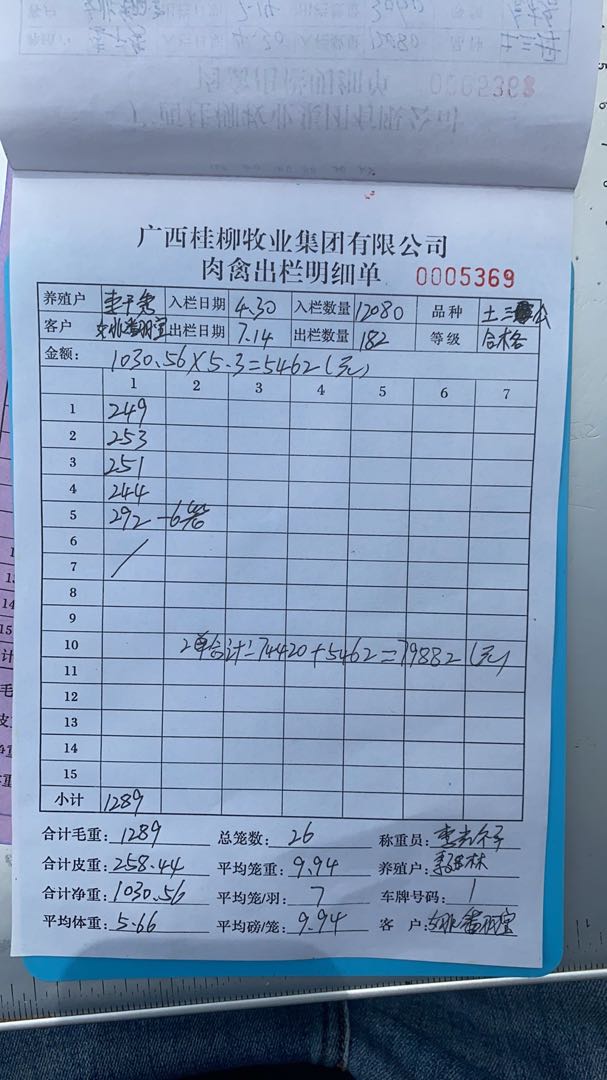 0005368
广西桂柳牧业集团有限公司
肉禽出栏明细单 0005369
养殖户 入栏日期 4.30 入栏数量 12080 品种 土三 公
客户 出栏日期 7.14 出栏数量 182 等级 合格
金额: 1030.56×5.3=5462(元)
1 2 3 4 5 6 7
1 249
2 253
3 251
4 244
5 292 -6笼
6
7 /
8
9
10 2单合计=74420+5462=79882(元)
11
12
13
14
15
小计 1289
合计毛重: 1289 总笼数: 26 称重员:
合计皮重: 258.44 平均笼重: 9.94 养殖户:
合计净重: 1030.56 平均笼/羽: 7 车牌号码: 1
平均体重: 5.66 平均磅/笼: 9.94 客户: